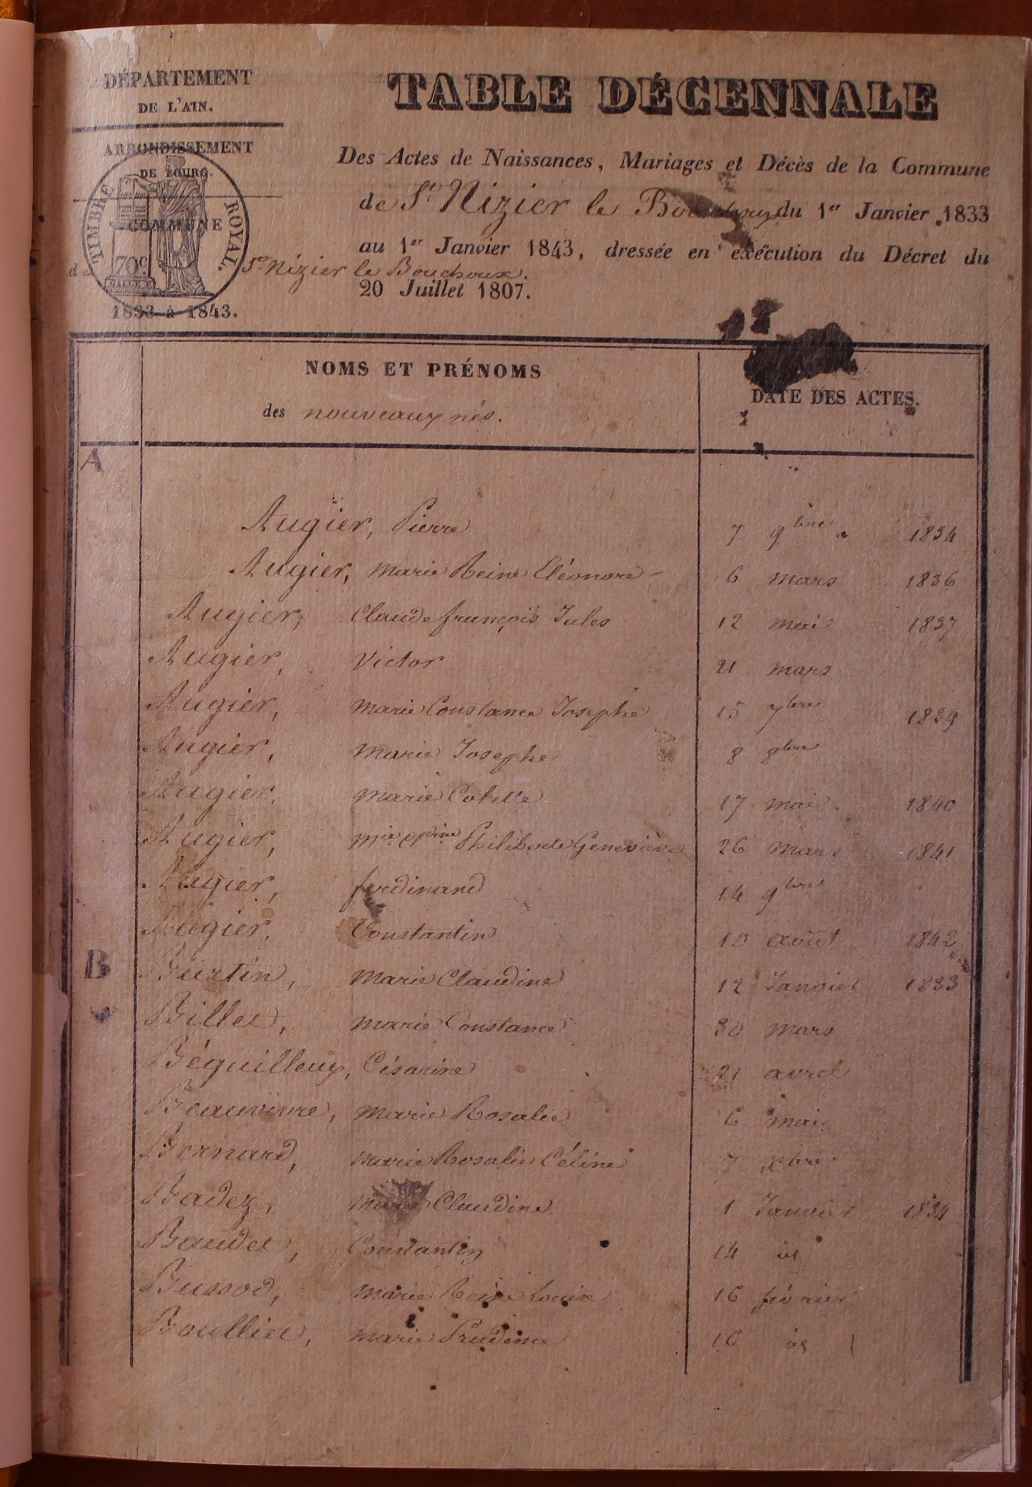 DÉPARTEMENT
DE L'AIN.
ARRONDISSEMENT
DE BOURG.
COMMUNE
TIMBRE ROYAL.
70c
de St Nizier le Bouchoux.
1833 à 1843.
TABLE DÉCENNALE
Des Actes de Naissances, Mariages et Décès de la Commune
de St Nizier le Bouchoux du 1er Janvier 1833
au 1er Janvier 1843, dressée en exécution du Décret du
20 Juillet 1807.
NOMS ET PRÉNOMS
des nouveaux nés.
DATE DES ACTES.
A
Augier, Pierre 7 9bre 1834
Augier, Marie Reine Eléonore 6 mars 1836
Augier, Claude françois Jules 12 mai 1837
Augier, Victor 21 mars
Augier, Marie Constance Josephe 15 7bre 1839
Augier, Marie Josephe 8 8bre
Augier, Marie 17 mai 1840
Augier, Mie Philiberte Geneviève 26 mars 1841
Augier, ferdinand 14 9bre
Augier, Constantin 10 août 1842
B
Burtin, Marie Claudine 12 Janvier 1833
Billet, Marie Constance 30 mars
Béguilleux, Césarine 21 avril
Beauvivre, Marie Rosalie 6 mai
Bernard, Marie Rosalie Céline 7 xbre
Badez, Marie Claudine 1 Janvier 1834
Baudet, Constantin 14 id
Bussod, Marie Reine Louise 16 février
Boullier, Marie Prudence 18 id